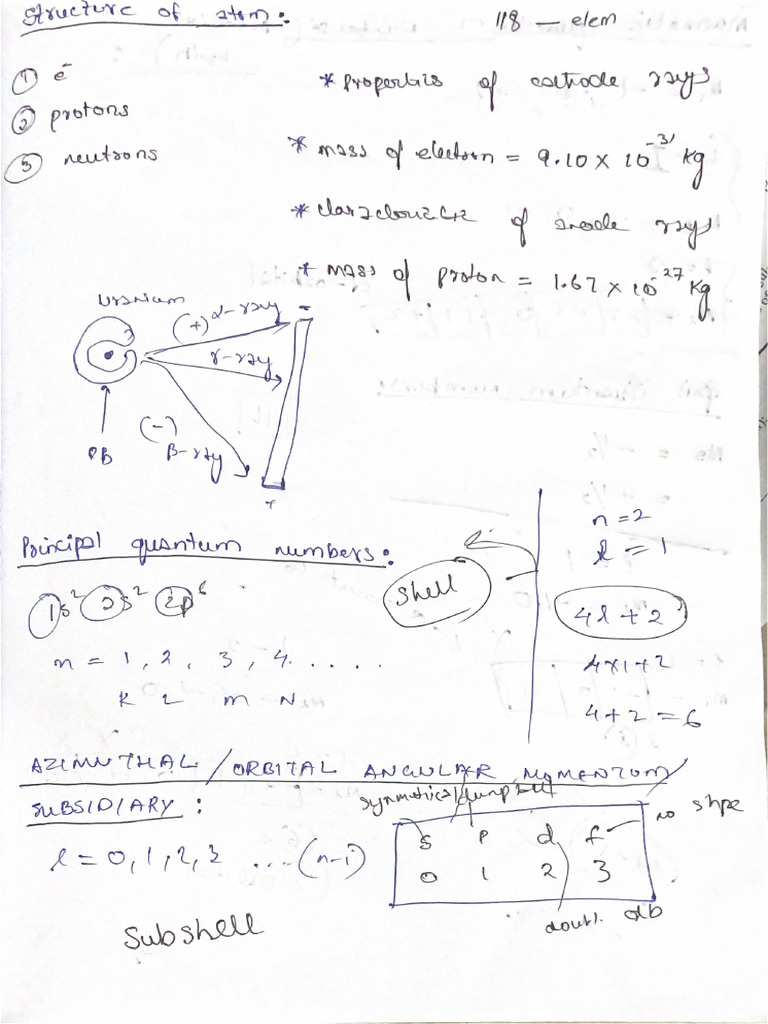 Structure of atom:
118 — elem
① e⁻
② protons
③ neutrons
* properties of cathode rays
* mass of electron = 9.10 × 10⁻³¹ kg
* of anode rays
* mass of proton = 1.67 × 10⁻²⁷ kg
Uranium
(+) α-ray
γ-ray
(-)
β-ray
PB
+
Principal quantum numbers:
1s² 2s² 2p⁶
n = 1, 2, 3, 4. . . . .
K L M N
shell
n = 2
l = 1
4l + 2
4×1+2
4+2 = 6
AZIMUTHAL / ORBITAL ANGULAR MOMENTUM/
SUBSIDIARY :
symmetrical
l = 0, 1, 2, 3 ... (n-1)
s p d f
0 1 2 3
no shpe
doubl. db
Subshell